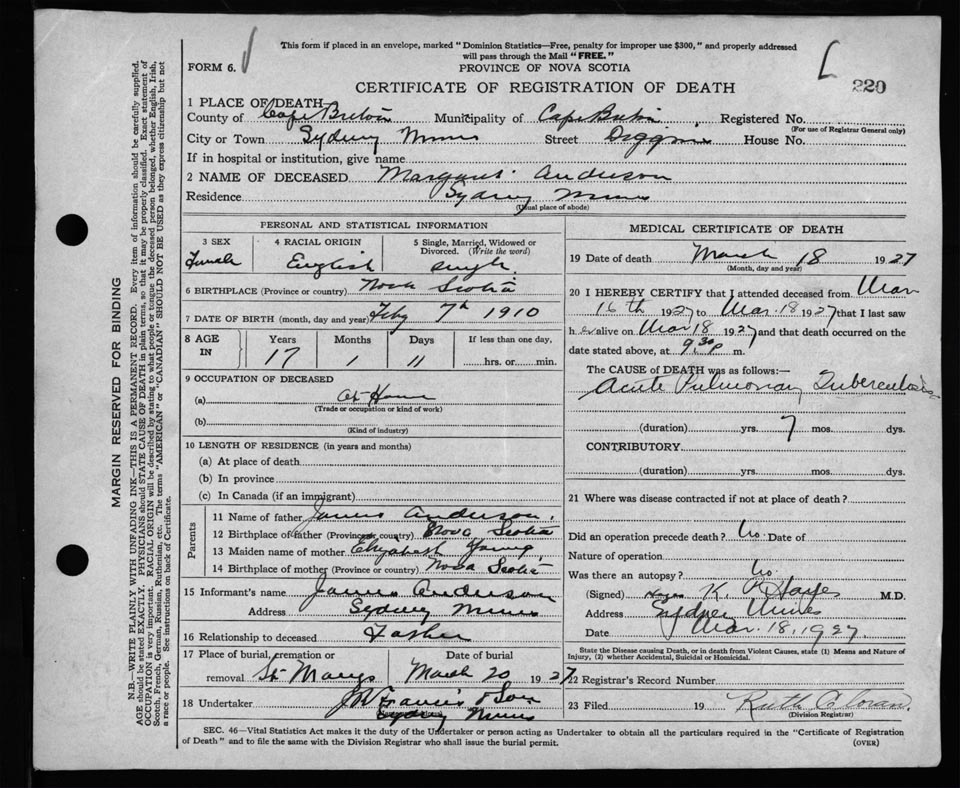 This form if placed in an envelope, marked "Dominion Statistics—Free, penalty for improper use $300," and properly addressed
will pass through the Mail "FREE."
FORM 6.
PROVINCE OF NOVA SCOTIA
220
CERTIFICATE OF REGISTRATION OF DEATH
1 PLACE OF DEATH—
County of Cape Breton Municipality of Cape Breton Registered No.
(For use of Registrar General only)
City or Town Sydney Mines Street House No.
If in hospital or institution, give name
2 NAME OF DECEASED Margaret Anderson
Residence Sydney Mines
(Usual place of abode)
PERSONAL AND STATISTICAL INFORMATION
3 SEX 4 RACIAL ORIGIN 5 Single, Married, Widowed or
Divorced. (Write the word)
Female English single
6 BIRTHPLACE (Province or country) Nova Scotia
7 DATE OF BIRTH (month, day and year) Feby 7th 1910
8 AGE
IN
Years Months Days If less than one day,
17 1 11 hrs. or min.
9 OCCUPATION OF DECEASED
(a) At Home
(Trade or occupation or kind of work)
(b)
(Kind of industry)
10 LENGTH OF RESIDENCE (in years and months)
(a) At place of death
(b) In province
(c) In Canada (if an immigrant)
Parents
11 Name of father James Anderson.
12 Birthplace of father (Province or country) Nova Scotia
13 Maiden name of mother Elizabeth Young
14 Birthplace of mother (Province or country) Nova Scotia
15 Informant's name James Anderson
Address Sydney Mines
16 Relationship to deceased Father
17 Place of burial, cremation or Date of burial
removal St Marys March 20 1927
18 Undertaker J W Francis & Son
Sydney Mines
MEDICAL CERTIFICATE OF DEATH
19 Date of death March 18 1927
(Month, day and year)
20 I HEREBY CERTIFY that I attended deceased from Mar
16th 1927 to Mar. 18 1927 that I last saw
h er alive on Mar 18 1927 and that death occurred on the
date stated above, at 9.30 p m.
The CAUSE of DEATH was as follows:—
Acute Pulmonary Tuberculosis
(duration) yrs. 7 mos. dys.
CONTRIBUTORY
(duration) yrs. mos. dys.
21 Where was disease contracted if not at place of death?
Did an operation precede death? No Date of
Nature of operation
Was there an autopsy? No
(Signed) K. Hayes M.D.
Address Sydney Mines
Date Mar. 18, 1927.
State the Disease causing Death, or in death from Violent Causes, state (1) Means and Nature of
Injury, (2) whether Accidental, Suicidal or Homicidal.
22 Registrar's Record Number
23 Filed 19 Ruth
(Division Registrar)
SEC. 46—Vital Statistics Act makes it the duty of the Undertaker or person acting as Undertaker to obtain all the particulars required in the "Certificate of Registration
of Death" and to file the same with the Division Registrar who shall issue the burial permit.
(OVER)
MARGIN RESERVED FOR BINDING
N.B.—WRITE PLAINLY WITH UNFADING INK—THIS IS A PERMANENT RECORD. Every item of information should be carefully supplied.
AGE should be stated EXACTLY. PHYSICIANS should STATE CAUSE OF DEATH in plain terms, so that it may be properly classified. Exact statement of
OCCUPATION is very important. RACIAL ORIGIN will be described by stating to what people or tongue the deceased person belonged, whether English, Irish,
Scotch, French, German, Russian, Ruthenian, etc. The terms "AMERICAN" or "CANADIAN" SHOULD NOT BE USED as they express citizenship but not
a race or people. See instructions on back of Certificate.